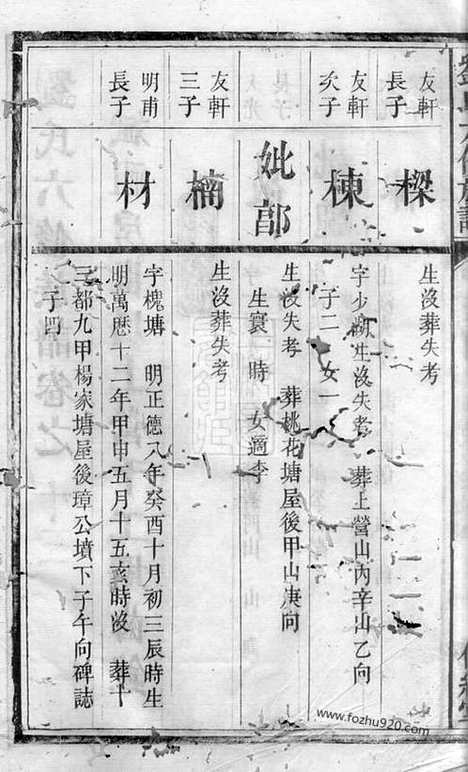 友軒
長子
樑
生沒葬失考
友軒
次子
棟
字少湖 生沒失考 葬上營山內辛山乙向
子二 女一
妣鄗
生沒失考 葬桃花塘屋後甲山庚向
生寰 時 女適李
友軒
三子
楠
生沒葬失考
明甫
長子
材
字槐塘 明正德八年癸酉十月初三辰時生
明萬歷十二年甲申五月十五亥時沒 葬十
三都九甲楊家塘屋後璋公墳下子午向碑誌
子四
www.fozhu920.com